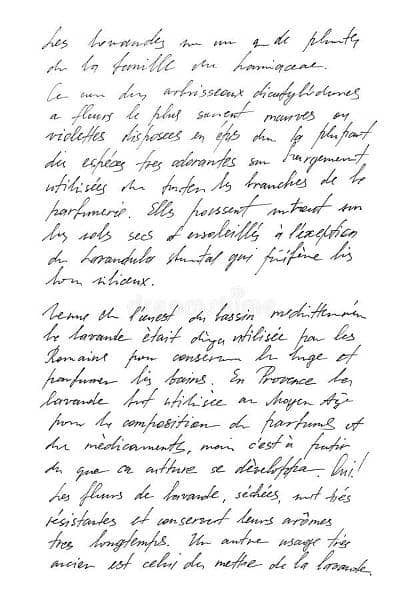 Les lavandes un g de plantes
de la famille du Lamiaceae.
Ce des arbrisseaux dicotylédones
a fleurs le plus souvent mauves ou
violettes disposées en épis la plupart
des espèces très odorantes largement
utilisées toutes les branches de la
parfumerie. Elles poussent surtout sur
les sols secs ensoleillés à l'exception
du Lavandula qui préfère les
siliceux.
Venue de l'ouest du bassin méditerranéen
la lavande était utilisée par les
Romains pour conserver le linge et
parfumer les bains. En Provence la
lavande utilisée au Moyen Age
pour la composition de parfums et
du médicaments, mais c'est à
du que culture se développa. Oui!
Les fleurs de lavande, séchées, sont très
résistantes et conservent leurs arômes
très longtemps. Un autre usage très
ancien est celui de mettre de la lavande